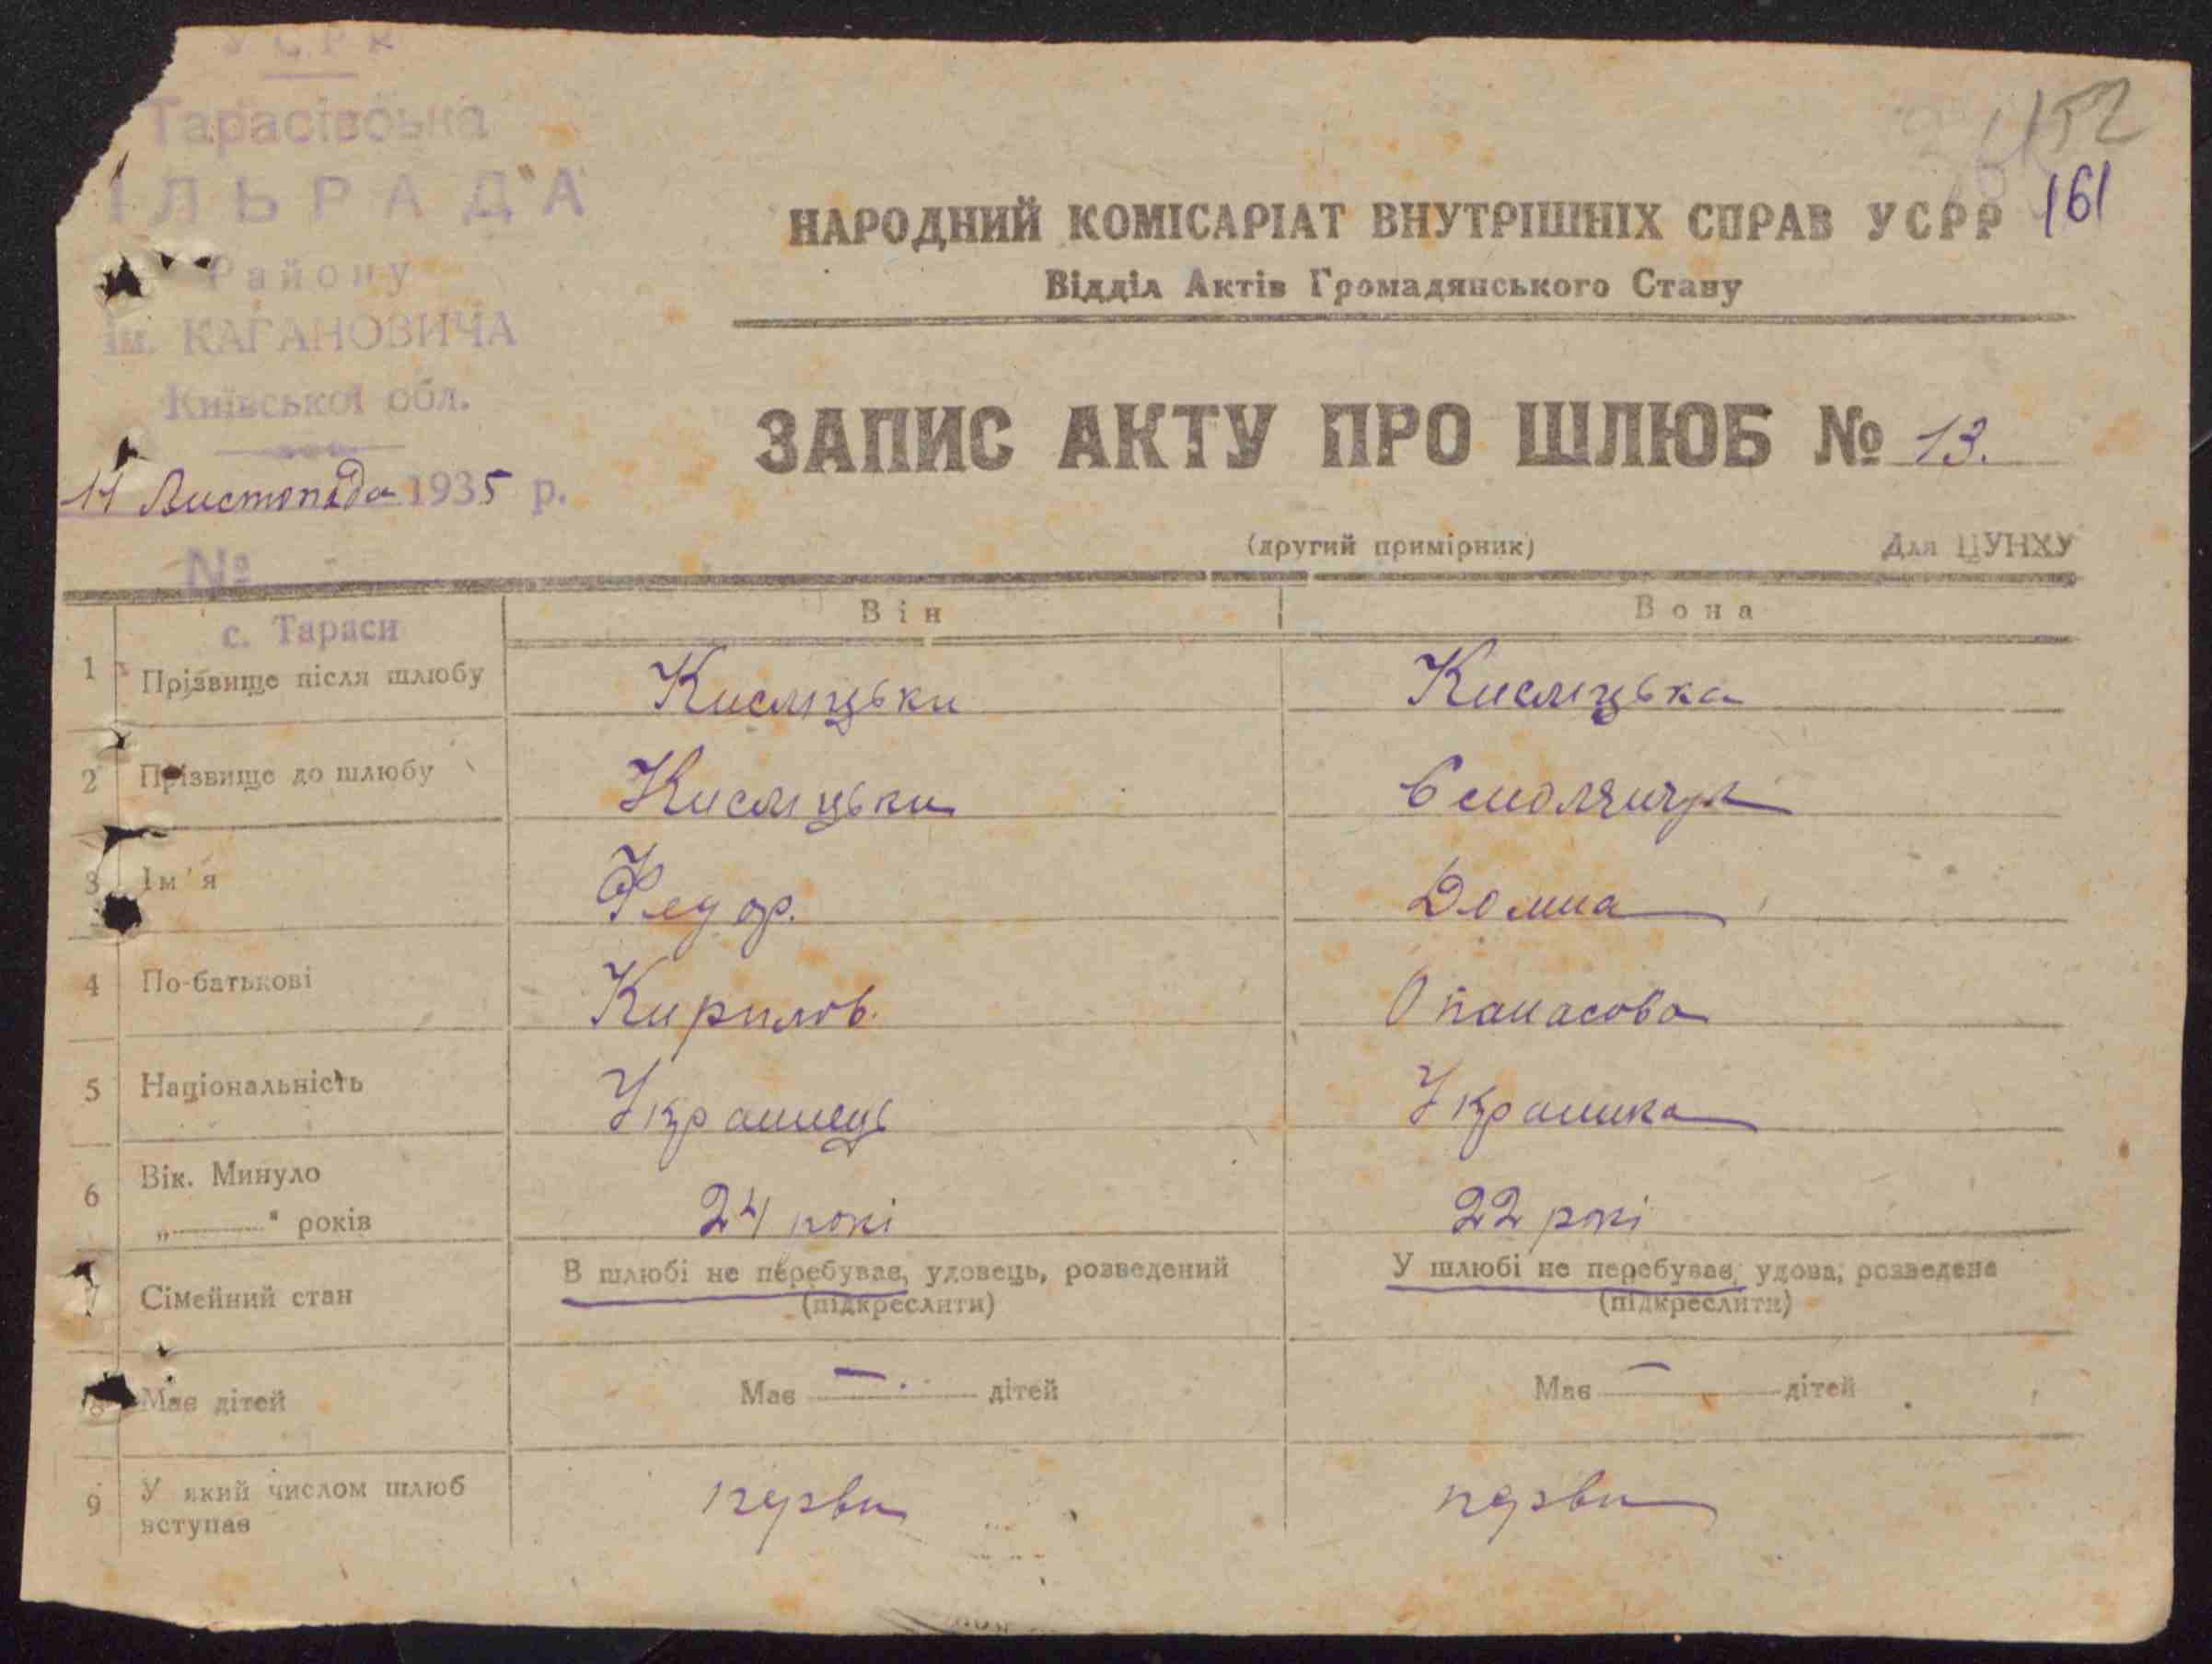 УСРР
Тарасівська
ІЛЬРАДА
Району
ім. КАГАНОВИЧА
Київської обл.
11 Листопада 1935 р.
№
с. Тараси
152
161
НАРОДНИЙ КОМІСАРІАТ ВНУТРІШНІХ СПРАВ УСРР
Відділ Актів Громадянського Стану
ЗАПИС АКТУ ПРО ШЛЮБ № 13.
(другий примірник) Для ЦУНХУ
Він Вона
1 Прізвище після шлюбу Кислицьки Кислицька
2 Прізвище до шлюбу Кислицьки
3 Ім'я Федор. Домна
4 По-батькові Кирилов. Опанасова
5 Національність Українець Українка
6 Вік. Минуло
„ “ років 24 рокі 22 рокі
7 Сімейний стан В шлюбі не перебуває, удовець, розведений У шлюбі не перебуває, удова, розведена
(підкреслити) (підкреслити)
8 Має дітей Має — дітей Має — дітей
9 У який числом шлюб перви перви
вступає